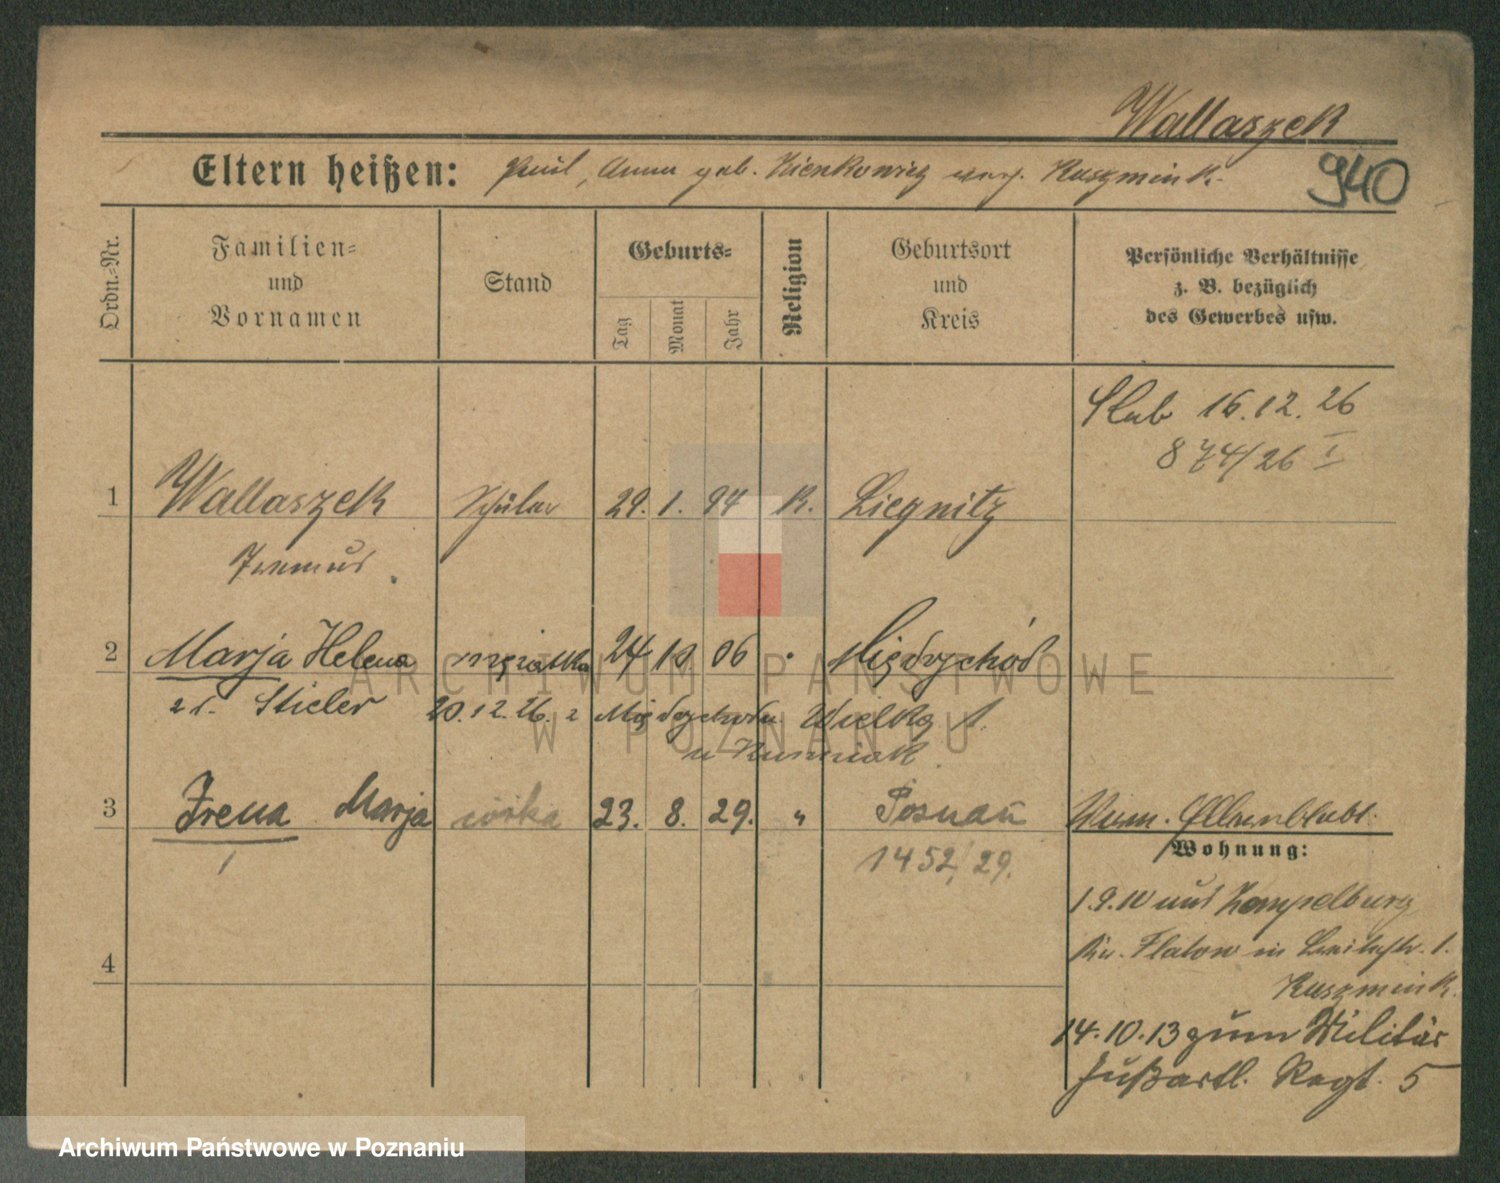 Wallaszek
940
Eltern heißen: Paul, Anna geb. Zienkowicz verw. Kuszmink.
Ordn.-Nr.
Familien- und Vornamen
Stand
Geburts-
Tag
Monat
Jahr
Religion
Geburtsort und Kreis
Persönliche Verhältnisse z. B. bezüglich des Gewerbes usw.
Ślub 16.12.26
874/26 I
1 Wallaszek Schüler 29. 1. 94 K. Liegnitz
2 Marja Helena mężatka 24 10 06 Międzychód
z d. Stieler 20.12.26 z Międzychodu Wielka 1.
u
3 Irena Marja córka 23. 8. 29. " Poznań
1452/29.
4
Wohnung:
1.9.10 aus Zempelburg
Kr. Flatow in 1.
Kuszmink.
14.10.13 zum Militär
Fußartl. Regt. 5
ARCHIWUM PAŃSTWOWE
W POZNANIU
Archiwum Państwowe w Poznaniu